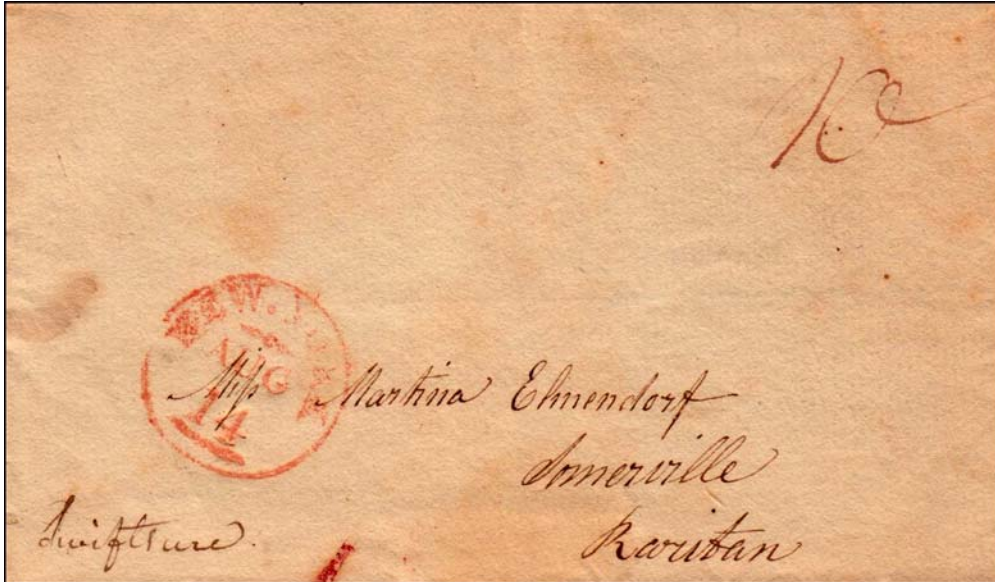 10
NEW. YORK
AUG
14
Miss Martina Elmendorf
Somerville
Raritan
Swiftsure.